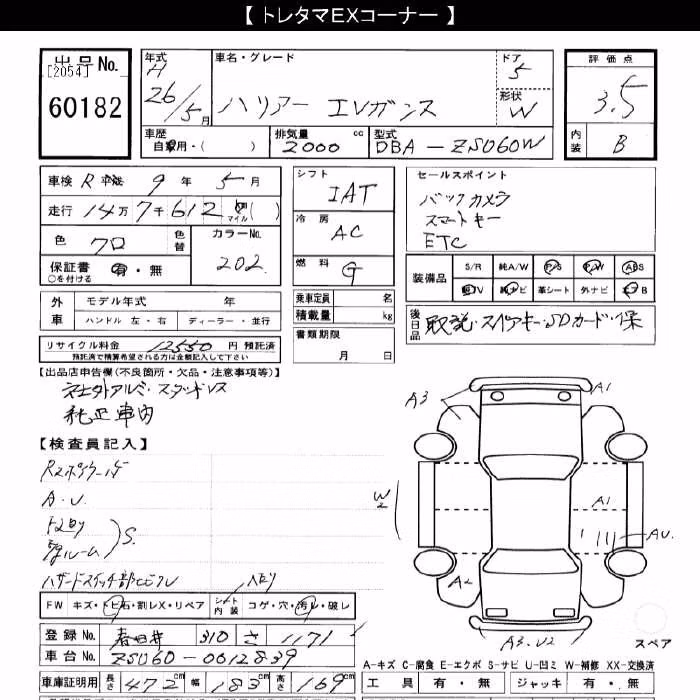 【 トレタマEXコーナー 】
出品 No.
[2054]
60182
年式 H 26/5月
車名・グレード ハリアー エレガンス
ドア 5
形状 W
評価点 3.5
内装 B
車歴 自家用・( )
排気量 2000 cc
型式 DBA-ZSU60W
車検 R 9年 5月
走行 14万7千612 マイル( )
色 クロ
色替
カラーNo. 202
保証書 有・無
○を付ける
シフト IAT
冷房 AC
燃料 G
乗車定員 名
積載量 kg
書類期限
月 日
セールスポイント
バックカメラ
スマートキー
ETC
装備品 S/R 純A/W P/S P/W ABS
純TV 純ナビ 革シート 外ナビ エアB
後日品 取説・スペアキー・SDカード・保
外車 モデル年式 年
ハンドル 左・右 ディーラー・並行
リサイクル料金 12550 円 預託済
預託済で精算希望される方は金額記入して下さい
【出品店申告欄(不良箇所・欠品・注意事項等)】
社外アルミ・スタッドレス
純正車内
【検査員記入】
A.U.
ルーム S.
FW キズ・トビ石・割レX・リペア シート内装 コゲ・穴・汚レ・破レ
登録No. 春日井 310 さ 1171
車台No. ZSU60-0012839
車庫証明用 長さ 472cm 幅 183cm 高さ 169cm
A3
A1
W2
A1
AU
A2
A3.U2
スペア
A-キズ C-腐食 E-エクボ S-サビ U-凹ミ W-補修 XX-交換済
工具 有・無 ジャッキ 有・無